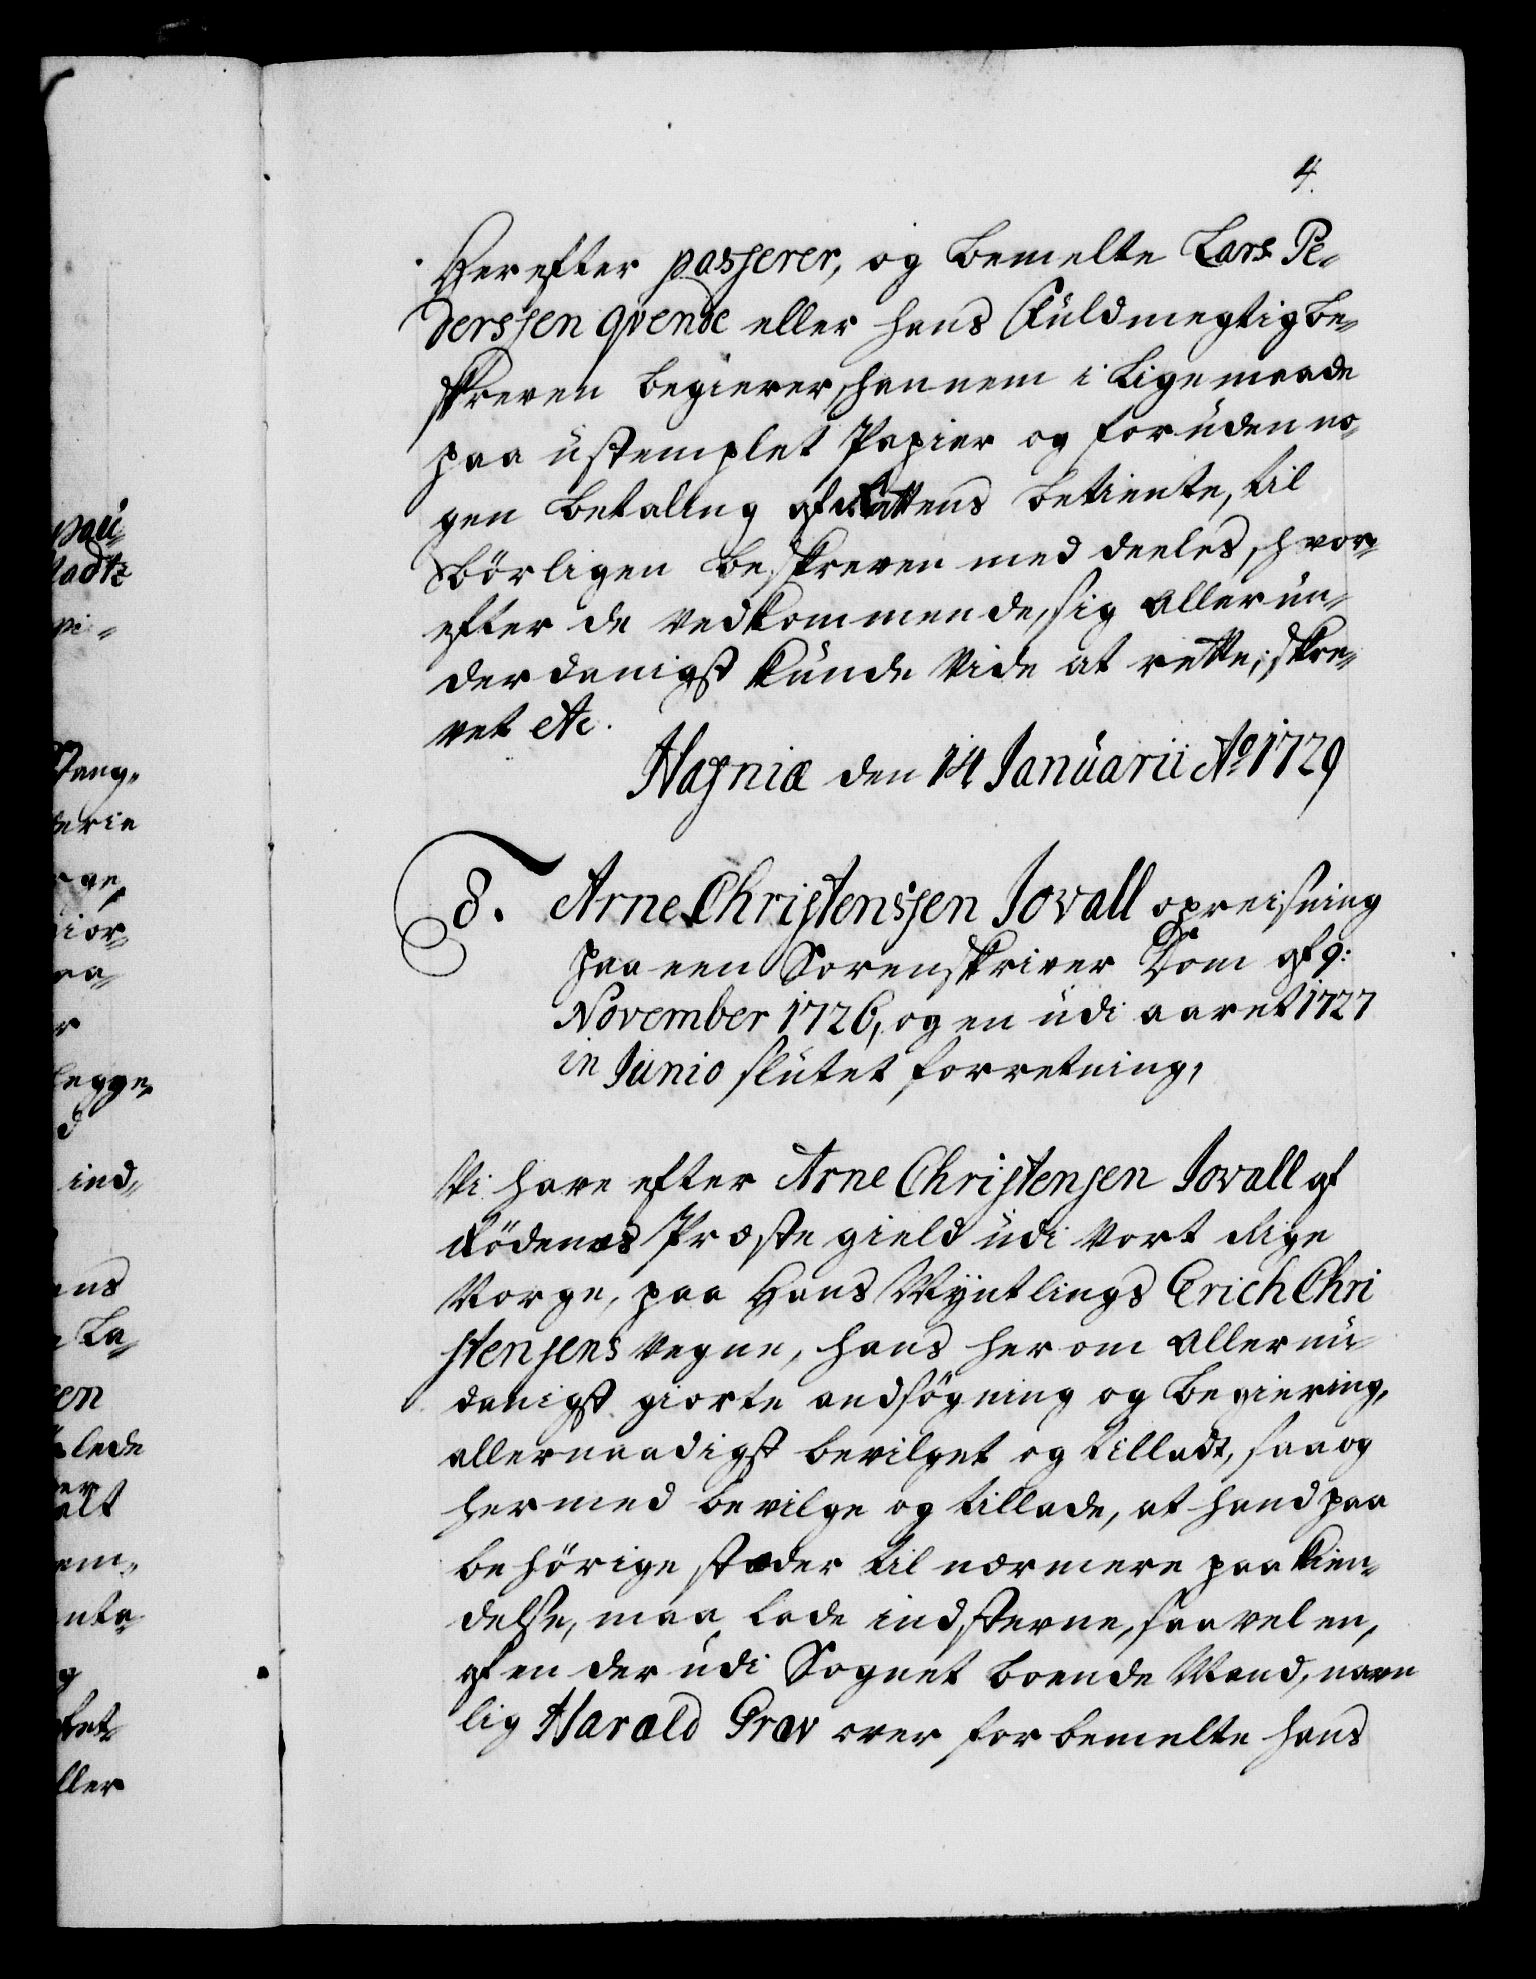 4.
Herefter passerer, og bemelte Lars Pe-
derssen Qvende eller hans Fuldmegtig be-
skreven begierer, hannem i ligemaade
paa ustemplet Papier og foruden no-
gen betaling af Rettens betiente, til
börligen beskreven meddeeles, hvor-
efter de vedkommende, sig allerun-
derdanigst kunde vide at rette; skre-
vet etc.
Hafniæ den 14 Januarii Ao 1729
8. Arne Christenssen Jovall opreisning
paa een Sorenskriver Dom af 9:
November 1726, og en udi aaret 1727
in Junio slutet forretning,
Vi have efter Arne Christensen Jovall af
Rödenæs Præstegield udi Vort Rige
Norge, paa Hans Myntlings Erich Chri
stensens vegne, hans herom allerun-
danigst giorte andsögning og begiering,
allernaadigst bevilget og tilladt, saa og
hermed bevilge og tillade, at hand paa
behörige stæder til nærmere paakien-
delse, maa lade indstevne, saavel en,
af en der udi Sognet boende Mand, navn
lig Harald Græv over forbemelte hans
pau-
ladt
pi-
Fang-
terie
ge,
gior-
aa-
r
legge-
d
ind-
ans
La-
en
lede
er
alt
em-
nte-
g
ftet-
ller